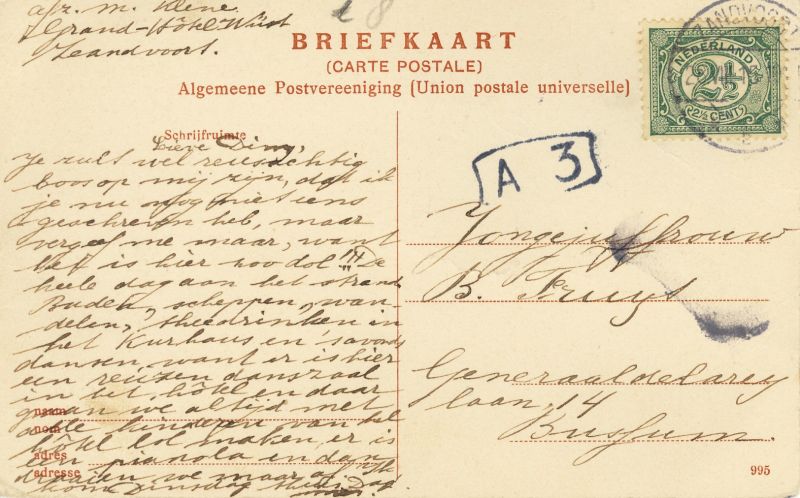 afz. M. Klene
Grand-Hôtel-Wüst
Zandvoort.
BRIEFKAART
(CARTE POSTALE)
Algemeene Postvereeniging (Union postale universelle)
ZANDVOORT
NEDERLAND
2½
2½ CENT
A 3
Schrijfruimte
Lieve Diny,
Je zult wel reusachtig
boos op mij zijn, dat ik
je nu nog niet eens
geschreven heb, maar
vergeef me maar, want
het is hier zoo dol!!! De
heele dag aan het strand
Baden, scheppen, wan-
delen, theedrinken in
het Kurhaus en 's avonds
dansen, want er is hier
een reuzen danszaal
in het hôtel en daar
gaan we altijd met
alle kinderen van het
hôtel lol maken, er is
een pianola en dan
draaien we maar af. Ik
kom Dinsdag thuis. Dag
naam
nom
adres
adresse
Jongejuffrouw
B. Fruys
Generaal de la Rey
laan 14
Bussum.
995